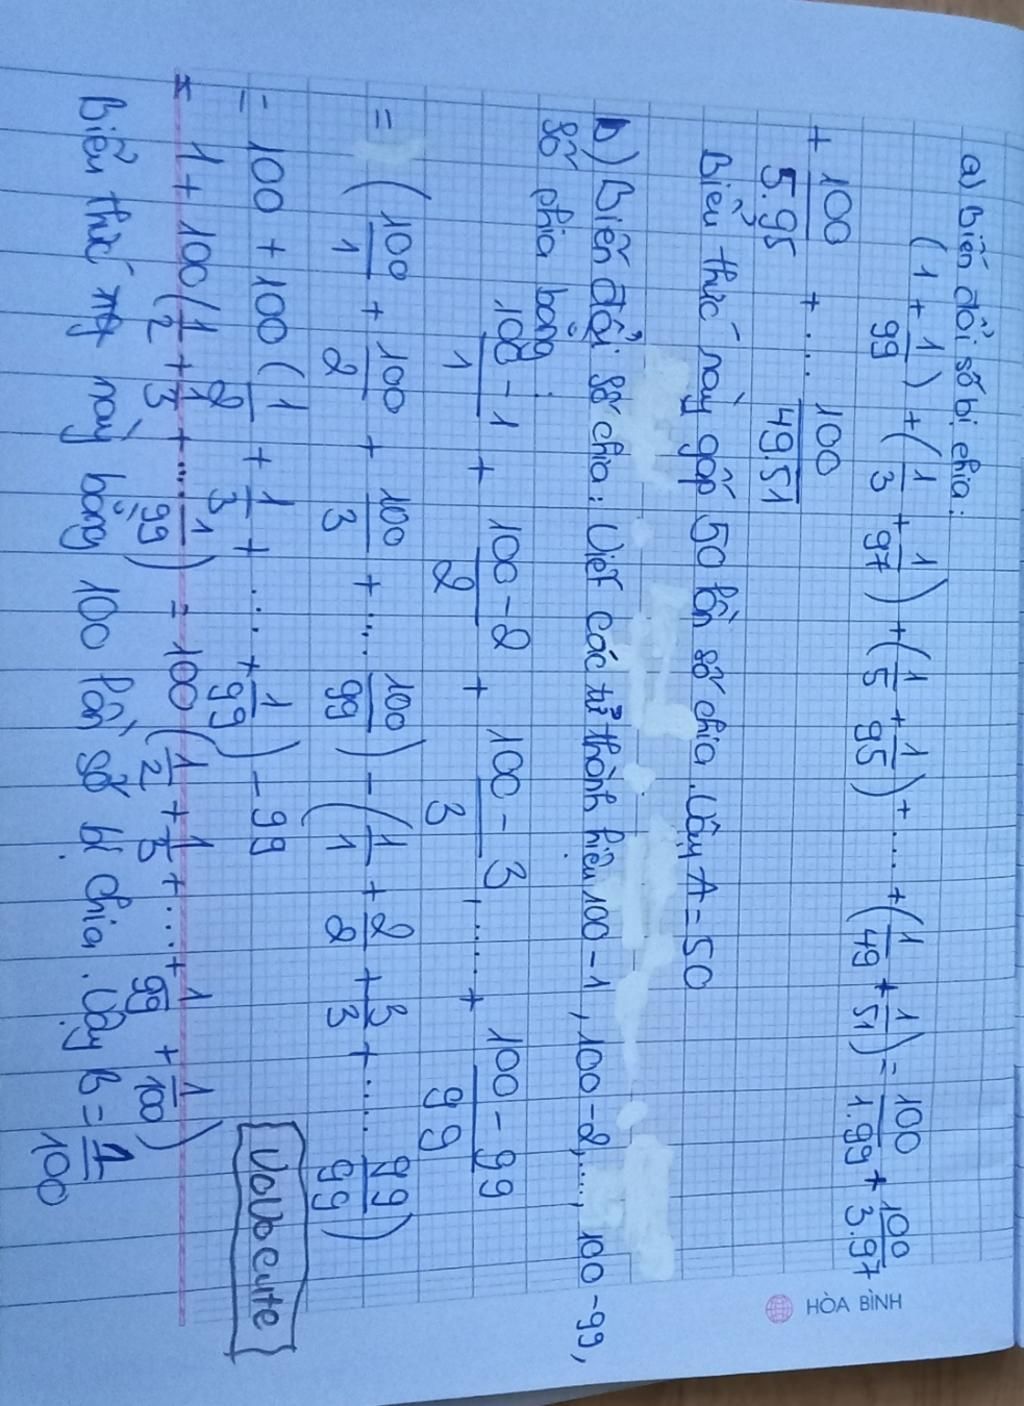 a) Biến đổi số bị chia:
(1 + 1/99) + (1/3 + 1/97) + (1/5 + 1/95) + .... + (1/49 + 1/51) = 100/1.99 + 100/3.97
+ 100/5.95 + .... 100/49.51
Biểu thức này gấp 50 lần số chia. Vậy A = 50
b) Biến đổi số chia: Viết các tử thành hiệu 100 - 1, 100 - 2, ...., 100 - 99,
số chia bằng:
100 - 1/1 + 100 - 2/2 + 100 - 3/3 + .... + 100 - 99/99
= (100/1 + 100/2 + 100/3 + .... 100/99) - (1/1 + 2/2 + 3/3 + .... 99/99)
= 100 + 100 (1/2 + 1/3 + .... + 1/99) - 99
= 1 + 100 (1/2 + 1/3 + .... 1/99) = 100 (1/2 + 1/3 + .... + 1/99 + 1/100)
Biểu thức này bằng 100 lần số bị chia. Vậy B = 1/100
VoVo cute
HÒA BÌNH